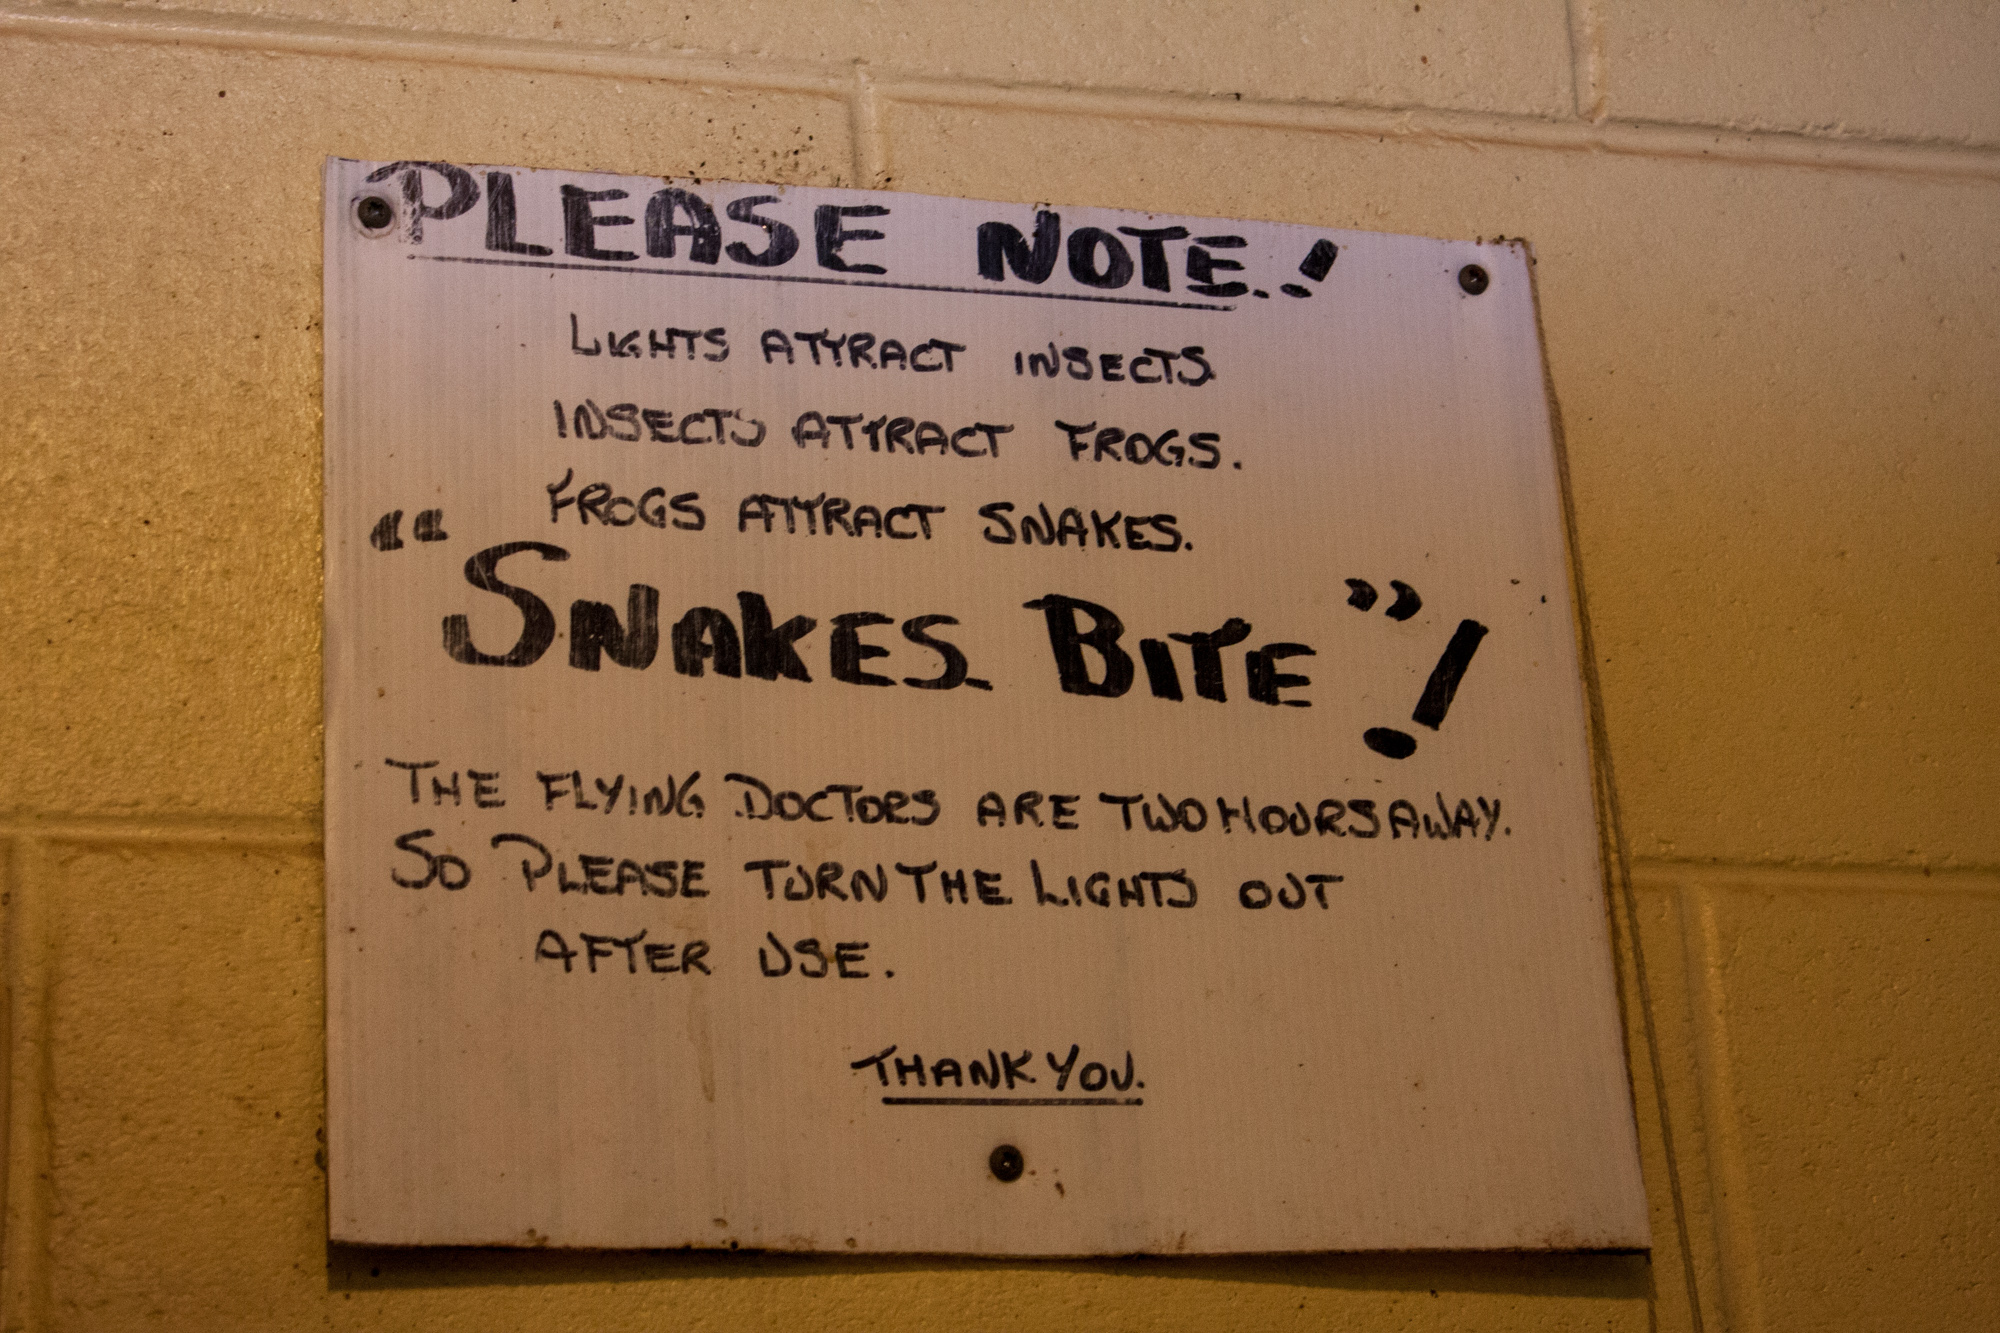 PLEASE NOTE.!
LIGHTS ATTRACT INSECTS.
INSECTS ATTRACT FROGS.
FROGS ATTRACT SNAKES.
“SNAKES BITE”!
THE FLYING DOCTORS ARE TWO HOURS AWAY.
SO PLEASE TURN THE LIGHTS OUT
AFTER USE.
THANK YOU.